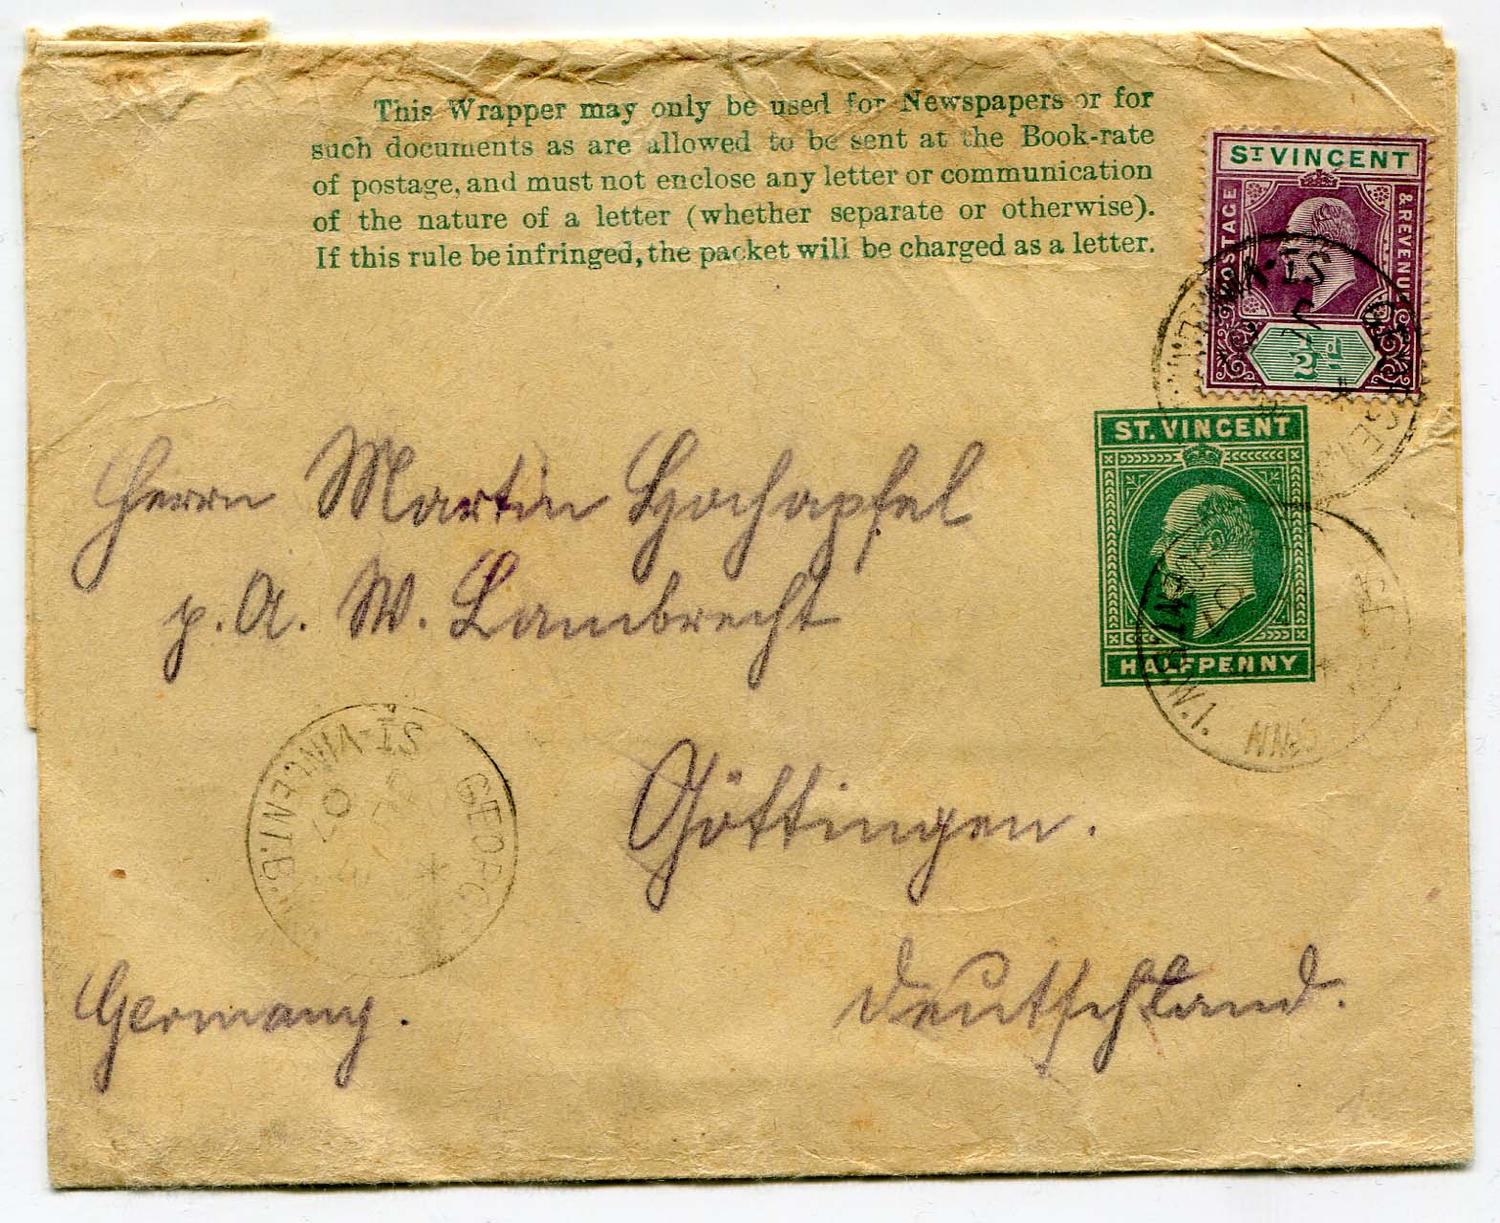 This Wrapper may only be used for Newspapers or for
such documents as are allowed to be sent at the Book-rate
of postage, and must not enclose any letter or communication
of the nature of a letter (whether separate or otherwise).
If this rule be infringed, the packet will be charged as a letter.
ST VINCENT
POSTAGE
& REVENUE
1/2 d
ST. VINCENT
HALFPENNY
Herrn Martin Hochapfel
p. A. W. Lambrecht
Göttingen.
Deutschland.
Germany.
GEORG
ST-VINCENT.B.
07